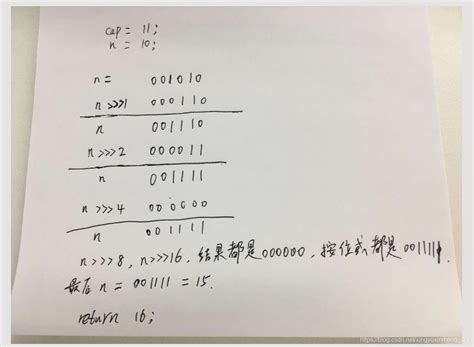 cap = 11;
n = 10;
n = 001010
n>>>1 000110
n 001110
n>>>2 000011
n 001111
n>>>4 000000
n 001111
n>>>8, n>>>16, 结果都是000000, 按位或都是001111.
最后 n = 001111 = 15.
return 16;